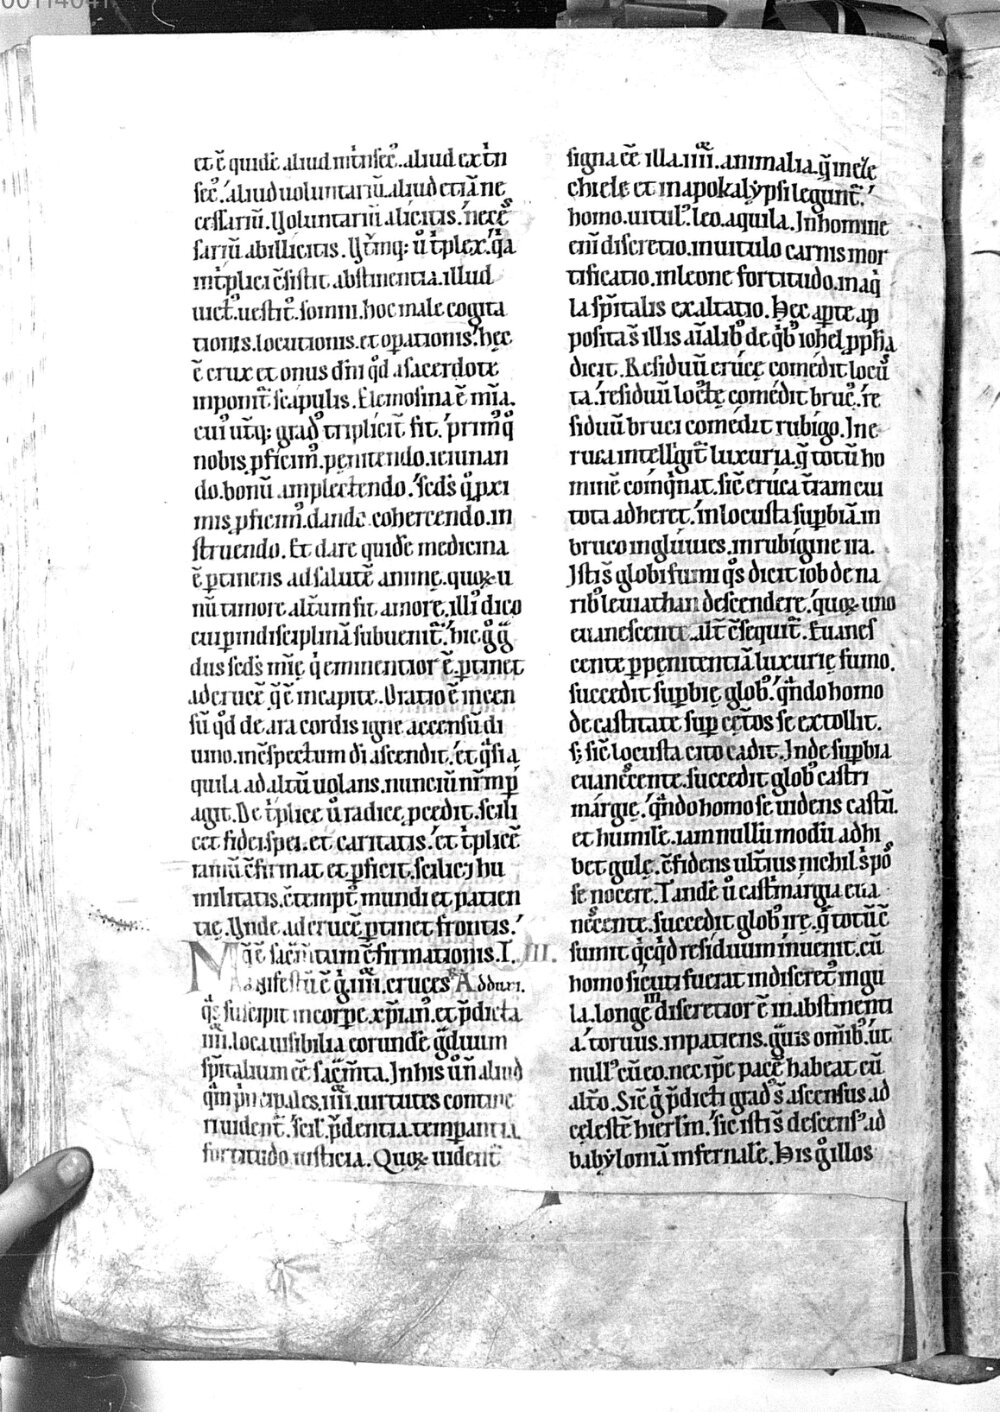 et ē quidē aliud intͥnsecᷣ. aliud extͥn
secᷣ. aliud uoluntariū. aliud etiā ne
cessariū. Voluntariū a licitis. nece
sariū ab illicitis. Vtrūq; ū tͥplex. qͥa
intͥplici cͦsistit abstinentia. illud
uictᷣ. uestitᷣ. somni. hoc male cogita
tionis. locutionis. et oꝑationis. hęc
ē crux et onus dn̄i qd̄ a sacerdote
inponit᷑ scapulis. Elemosina ē mīa.
cuiᷣ utq; gradᷣ tripliciť fit. primᷣ qͦ
nobis ꝓficimᷣ. penitendo. ieiunan
do. bonū amplectendo. scd̄s qͦ ꝓxi
mis ꝓficimᷣ. dando. cohercendo. in
struendo. Et dare quidē medicina
ē ꝑtinens ad salutē animę. quoꝝ u
nū timore altum fit amore. illiᷣ dico
cui ꝑ indisciplinā subuenit᷑. hic gͦ gͣ
dus scd̄s mīę qͥ eminentior ē. ꝑtinet
ad crucē quę in capite. Oratio ē incen
sū qd̄ de ara cordis igne accensū di
uino. in cͦspectum dī ascendit. et qͣsi a
quila ad altū uolans. nunciū nr̄m p̄
agit. De tͥplice ū radice ꝓcedit. scili
cet fidei. spei. et caritatis. et tͥplicē
ramū cͦfirmat et ꝑficit. scilicȝ hu
militatis. cͦtemptᷣ mundi et patien
tię. Vnde ad crucē ꝑtinet frontis.
sac̄mtum cͦfirmationis. I. III.
Manifestū ē gͦ. iiii. cruces Addnci.
qͣs suscipit in corpe xp̄ian. et p̄dicta
iiii. loca uisibilia eorundē gͣduum
sp̄italium eē sac̄mta. In his ū n̄ aliud
qͣm principales. iiii. uirtutes contine
ri uident᷑. scil. p̄dentia temperantia
fortitudo iusticia. Quoꝝ uident᷑
signa eē illa. iiii. animalia. q̄ in eze
chiele et in apokalẏpsi legunt᷑.
homo. uitulᷣ. leo. aquila. In homine
enī discretio. in uitulo carnis mor
tificatio. in leone fortitudo. in aqͥ
la sp̄italis exaltatio. Hęc aꝑte ap
posita s̄ illis aīalibᷣ de qͥbᷣ iohel ꝓpħa
dicit. Residuū erucę comedit locu
ta. residuū locustę comedit brucᷣ. re
siduū bruci comedit rubigo. In e
ruca intelligit᷑ luxuria. q̄ totū ho
minē coinqͥnat. sic̄ eruca tr̄am cui
tota adheret. in locusta suꝑbia. in
bruco ingluuies. in rubigine ira.
Isti s̄ globi fumi qͦs dicit iob de na
ribᷣ leuiathan descendere. quoꝝ uno
euanescente. alt̄ cͦsequit᷑. Euanes
cente ꝑ penitentiā luxurię fumo.
succedit suꝑbię globᷣ. qͣndo homo
de castitate suꝑ cet̄os se extollit.
s; sic̄ locusta cito cadit. Inde suꝑbia
euanescente. succedit globᷣ castri
margię. qͣndo homo se uidens castū.
et humilē. iam nullū modū adhi
bet gulę. cͦfidens ulťius nichil s̄ posͦ
se nocere. Tandē ū castͥmargia eua
nescente. succedit globᷣ irę. q̄ totū cͦ
sumit qͥcqͥd residuum inuenit. cū
homo sicuti fuerat indiscretᷣ in gu
la. longe indiscretior ē in abstinenti
a. toruus. inpatiens. grͣuis omībᷣ. ut
nullᷣ cū eo. nec ip̄e pacē habeat cū
altͦo. Sic̄ gͦ p̄dicti gradᷣ s̄ ascensus ad
celestē hierlm̄. sic isti s̄ descensᷣ ad
babẏloniā infernalē. His gͦ illos